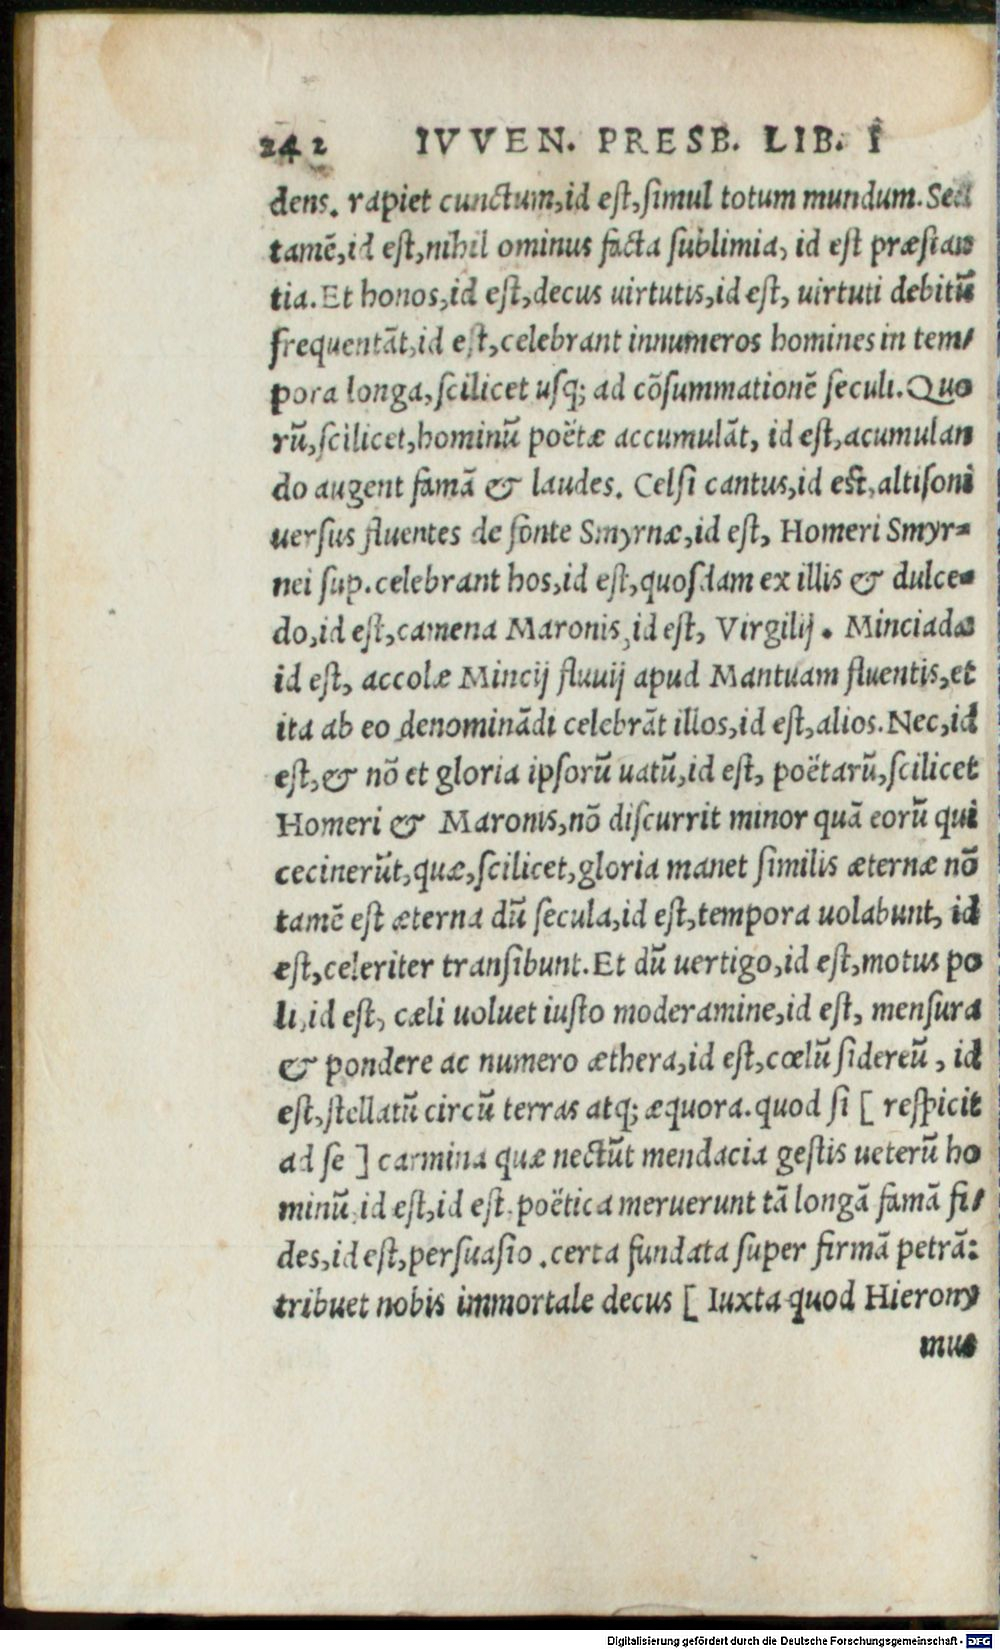 242 IVVEN. PRESB. LIB. I
dens. rapiet cunctum,id est,simul totum mundum. Sed
tamē,id est,nihil ominus facta sublimia, id est præstan
tia. Et honos,id est,decus uirtutis,id est, uirtuti debitū
frequentāt,id est,celebrant innumeros homines in tem/
pora longa,scilicet usq; ad cōsummationē seculi. Quo
rū,scilicet,hominū poëtæ accumulāt, id est,acumulan
do augent famā & laudes. Celsi cantus,id est,altisoni
uersus fluentes de fonte Smyrnæ,id est, Homeri Smyr=
nei sup. celebrant hos,id est,quosdam ex illis & dulce=
do,id est,camena Maronis,id est, Virgilij. Minciadæ
id est, accolæ Mincij fluuij apud Mantuam fluentis,et
ita ab eo denominādi celebrāt illos,id est,alios. Nec,id
est,& nō et gloria ipsorū uatū,id est, poëtarū,scilicet
Homeri & Maronis,nō discurrit minor quā eorū qui
cecinerūt,quæ,scilicet,gloria manet similis æternæ nō
tamē est æterna dū secula,id est,tempora uolabunt, id
est,celeriter transibunt. Et dū uertigo,id est,motus po
li,id est, cæli uoluet iusto moderamine,id est, mensura
& pondere ac numero æthera,id est,cœlū sidereū, id
est,stellatū circū terras atq; æquora. quod si [ respicit
ad se ] carmina quæ nectūt mendacia gestis ueterū ho
minū,id est,id est.poëtica meruerunt tā longā famā fi/
des,id est,persuasio .certa fundata super firmā petrā:
tribuet nobis immortale decus [ Iuxta quod Hierony
mus
Digitalisierung gefördert durch die Deutsche Forschungsgemeinschaft - DFG